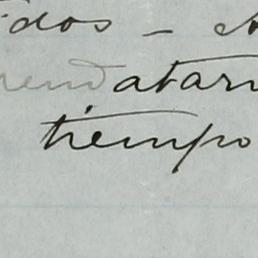 idos - A
rendatari
tiempo